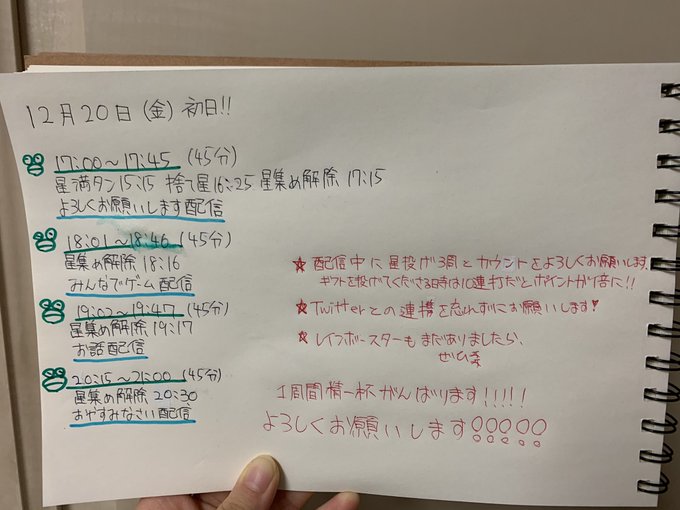 12月20日(金) 初日!!
17:00〜17:45 (45分)
星満タン15:15 捨て星16:25 星集め解除 17:15
よろしくお願いします配信
18:01〜18:46 (45分)
星集め解除 18:16
みんなでゲーム配信
19:02〜19:47 (45分)
星集め解除 19:17
お話配信
20:15〜21:00 (45分)
星集め解除 20:30
おやすみなさい配信
★ 配信中に星投げ3周とカウントをよろしくお願いします、
ギフトを投げてくださる時は10連打だとポイントが1倍に!!
★ Twitterとの連携を忘れずにお願いします!
★ レインボースターもまだありましたら、
ぜひ
1週間精一杯がんばります!!!!!
よろしくお願いします!!!!!